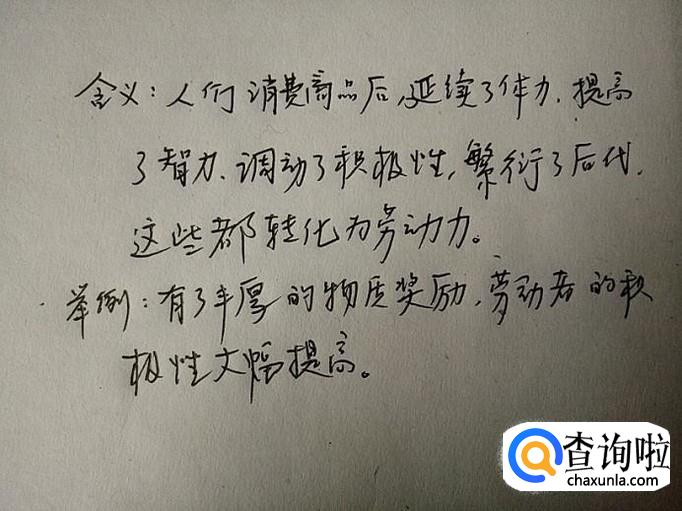 含义：人们消费商品后，延续了体力、提高
了智力、调动了积极性，繁衍了后代，
这些都转化为劳动力。
举例：有了丰厚的物质奖励，劳动者的积
极性大幅提高。
查询啦
chaxunla.com